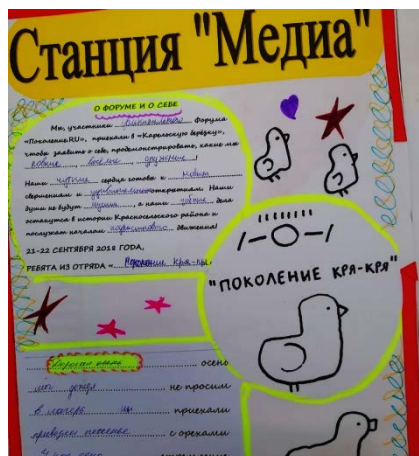 Станция "Медиа"
О ФОРУМЕ И О СЕБЕ
Мы, участники форума
«ПоколениеRU», приехали в «Карельскую берёзку»,
чтобы заявить о себе, продемонстрировать, какие мы
ловкие, весёлые, дружные!
Наши чуткие сердца готовы к новым
свершениям и удивительным открытиям. Наши
души не будут, а наши добрые дела
останутся в истории Красносельского района и
послужат началом движения!
21-22 СЕНТЯБРЯ 2018 ГОДА,
РЕБЯТА ИЗ ОТРЯДА «Поколение кря-кря»
"ПОКОЛЕНИЕ КРЯ-КРЯ"
осень
мы дождя не просим
в лагерь мы приехали
печенье с орехами